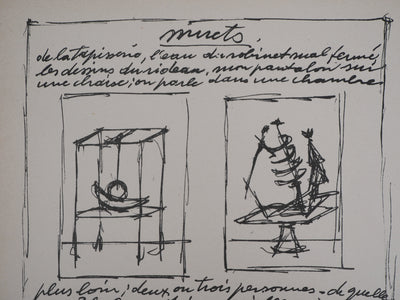 muets.
de la tapisserie, l'eau du robinet mal fermé,
les dessins du rideau, mon pantalon sur
une chaise; on parle dans une chambre
plus loin; deux, ou trois personnes - de quelle